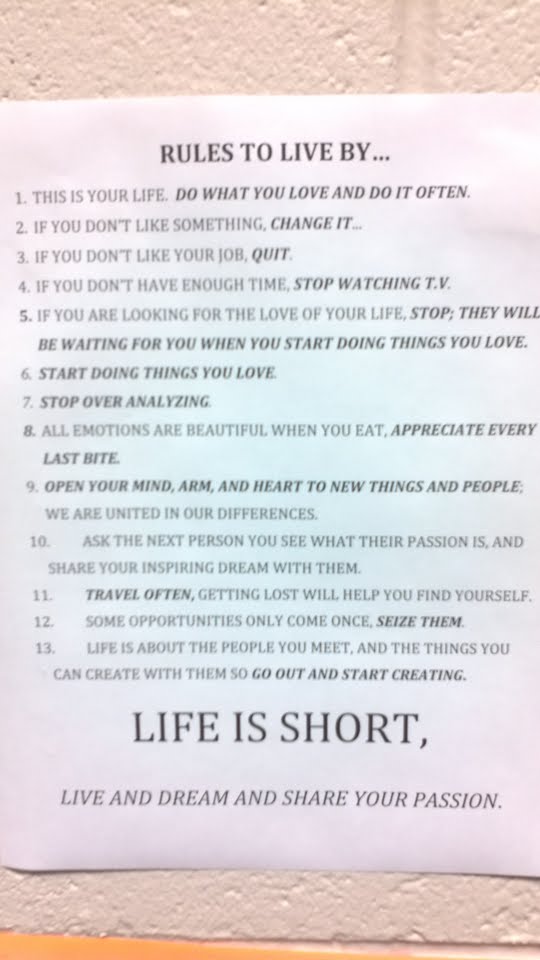 RULES TO LIVE BY...
1. THIS IS YOUR LIFE. DO WHAT YOU LOVE AND DO IT OFTEN.
2. IF YOU DON'T LIKE SOMETHING, CHANGE IT...
3. IF YOU DON'T LIKE YOUR JOB, QUIT.
4. IF YOU DON'T HAVE ENOUGH TIME, STOP WATCHING T.V.
5. IF YOU ARE LOOKING FOR THE LOVE OF YOUR LIFE, STOP; THEY WILL
BE WAITING FOR YOU WHEN YOU START DOING THINGS YOU LOVE.
6. START DOING THINGS YOU LOVE.
7. STOP OVER ANALYZING.
8. ALL EMOTIONS ARE BEAUTIFUL WHEN YOU EAT, APPRECIATE EVERY
LAST BITE.
9. OPEN YOUR MIND, ARM, AND HEART TO NEW THINGS AND PEOPLE;
WE ARE UNITED IN OUR DIFFERENCES.
10. ASK THE NEXT PERSON YOU SEE WHAT THEIR PASSION IS, AND
SHARE YOUR INSPIRING DREAM WITH THEM.
11. TRAVEL OFTEN, GETTING LOST WILL HELP YOU FIND YOURSELF.
12. SOME OPPORTUNITIES ONLY COME ONCE, SEIZE THEM.
13. LIFE IS ABOUT THE PEOPLE YOU MEET, AND THE THINGS YOU
CAN CREATE WITH THEM SO GO OUT AND START CREATING.
LIFE IS SHORT,
LIVE AND DREAM AND SHARE YOUR PASSION.